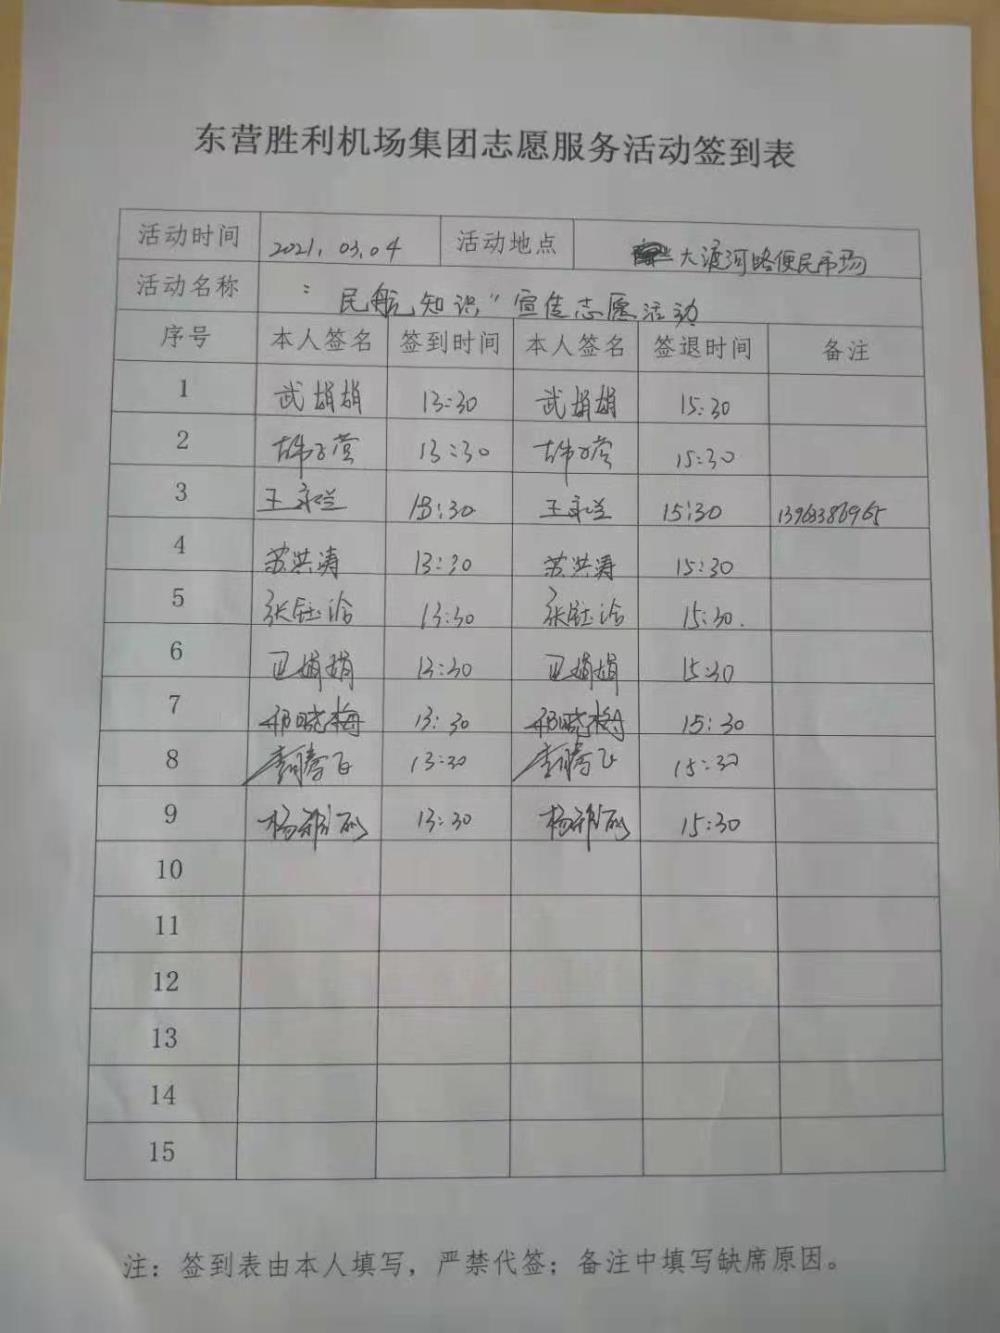 东营胜利机场集团志愿服务活动签到表
活动时间 2021.03.04 活动地点 大渡河路便民市场
活动名称 : 民航知识"宣传志愿活动
序号 本人签名 签到时间 本人签名 签退时间 备注
1 武娟娟 13:30 武娟娟 15:30
2 13:30 15:30
3 王 13:30 王 15:30 13963386965
4 苏洪涛 13:30 苏洪涛 15:30
5 张钰 13:30 张钰 15:30.
6 卫娟娟 13:30 卫娟娟 15:30
7 晓梅 13:30 晓梅 15:30
8 李腾飞 13:30 李腾飞 15:30
9 杨 13:30 杨 15:30
10
11
12
13
14
15
注：签到表由本人填写，严禁代签；备注中填写缺席原因。